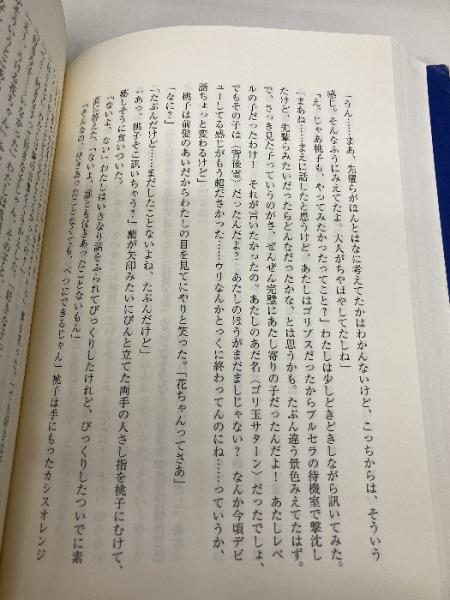 「うん……まあ、先輩らがほんとはなに考えてたかはわかんないけど、こっちからは、そういう
感じ。そんなふうにみえてたよ。大人がちやほやしてたしね」
「え、じゃあ桃子も、やってみたかったってこと?」わたしは少しどきどきしながら訊いてみた。
「まあね……まえに話したと思うけど、あたしはゴリブスだったからブルセラの待機室で撃沈し
たけど、先輩らみたいだったらどんなだったかな、とは思うかも。たぶん違う景色みえてたはず。
で、さっき見た子っていうのがさ、ぜんぜん完璧にあたし寄りの子だったんだよ! あたしレベ
ルの子だったわけ! それが言いたかったの。あたしのあだ名〈ゴリ玉サターン〉だったでしょ、
でもその子は〈背後霊〉だったんだよ? あたしのほうがまだましじゃない? なんか今頃デビ
ューしてる感じがもう超ださかった……ウリなんかとっくに終わってんのにね……っていうか、
話ちょっと変わるけど」
「なに?」
桃子は前髪のあいだからわたしの目を見てにやりと笑った。「花ちゃんってさあ」
「たぶんだけど……まだしたことないよね、たぶんだけど」
「あっ、桃子そこ訊いちゃう?」蘭が矢印みたいにぴんと立てた両手の人さし指を桃子にむけて、
嬉しそうに食いついた。
「ないよ、ない」わたしはいきなり話をふられてびっくりしたけれど、びっくりしたついでに素
直に答えた。「ないよ、誰とも付きあったことないもん」
「そんなの、付きあったことなくても、べつにできるじゃん」桃子は手にもったカシスオレンジ